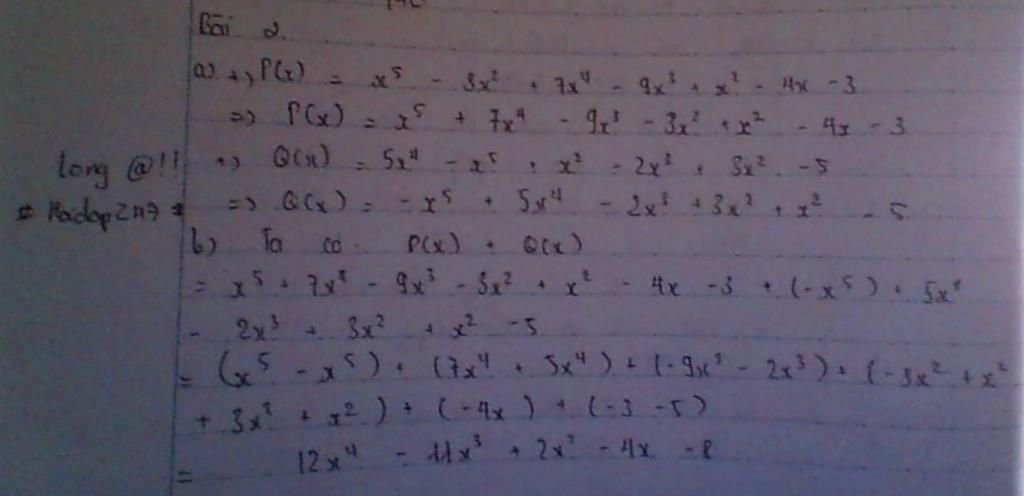 Bài 2.
a) +) P(x) = x⁵ - 3x² + 7x⁴ - 9x³ + x² - 4x - 3
=> P(x) = x⁵ + 7x⁴ - 9x³ - 3x² + x² - 4x - 3
long @!!
+) Q(x) = 5x⁴ - x⁵ + x² - 2x³ + 3x² - 5
=> Q(x) = - x⁵ + 5x⁴ - 2x³ + 3x² + x² - 5
b) Ta có: P(x) + Q(x)
= x⁵ + 7x⁴ - 9x³ - 3x² + x² - 4x - 3 + (-x⁵) + 5x⁴
- 2x³ + 3x² + x² - 5
= (x⁵ - x⁵) + (7x⁴ + 5x⁴) + (-9x³ - 2x³) + (-3x² + x²
+ 3x² + x²) + (-4x) + (-3 - 5)
= 12x⁴ - 11x³ + 2x² - 4x - 8